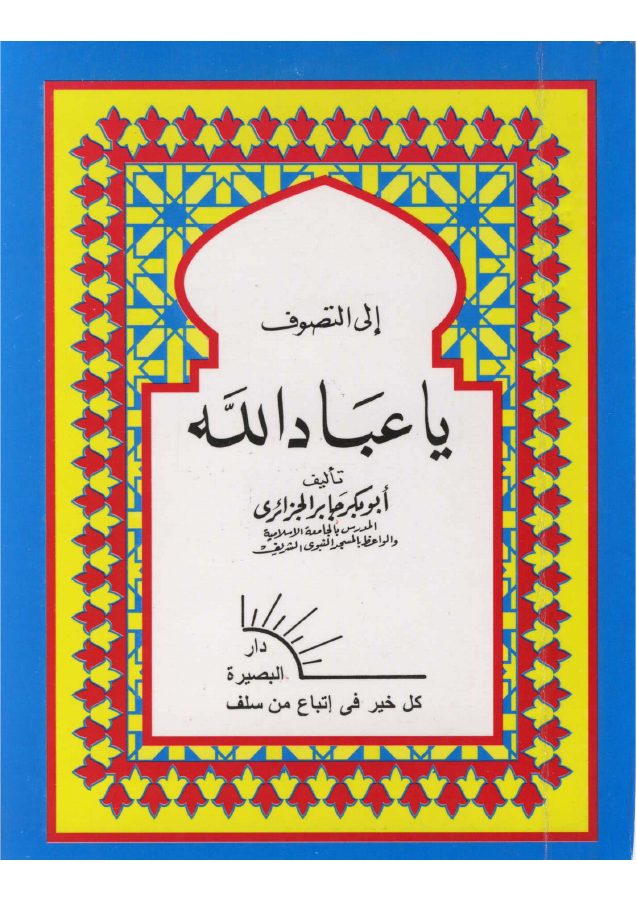 إلى التصوف
يا عباد الله
تأليف
أبو بكر جابر الجزائرى
المدرس بالجامعة الاسلامية
والواعظ بالمسجد النبوى الشريف
دار
البصيرة
كل خير فى إتباع من سلف